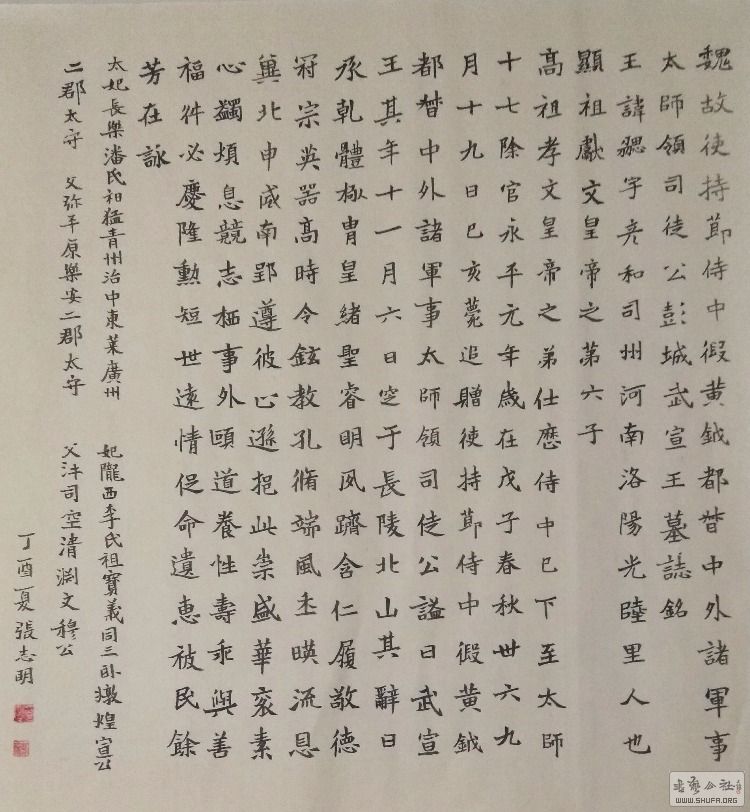 魏故使持節侍中假黃鉞都督中外諸軍事
太師領司徒公彭城武宣王墓誌銘
王諱勰字彦和司州河南洛陽光睦里人也
顯祖獻文皇帝之第六子
高祖孝文皇帝之弟仕歷侍中已下至太師
十七除官永平元年歲在戊子春秋卅六九
月十九日己亥薨追贈使持節侍中假黃鉞
都督中外諸軍事太師領司徒公謚曰武宣
王其年十一月六日窆于長陵北山其辭曰
承乾體極胄皇緒聖睿明夙躋含仁履敬德
冠宗英器高時令鉉教孔脩端風丕暎流恩
冀北申威南郢遵彼止遜挹此崇盛華衮素
心蠲煩息競志栖事外頤道養性壽乖與善
福舛必慶隆勳短世遠情促命遺惠被民餘
芳在詠
太妃長樂潘氏祖猛青州治中東萊廣州
二郡太守 父弥平原樂安二郡太守
妃隴西李氏祖寶義同三卧燉煌宣公
父沣司空清渊文穆公
丁酉夏張志明
WWW.SHUFA.ORG